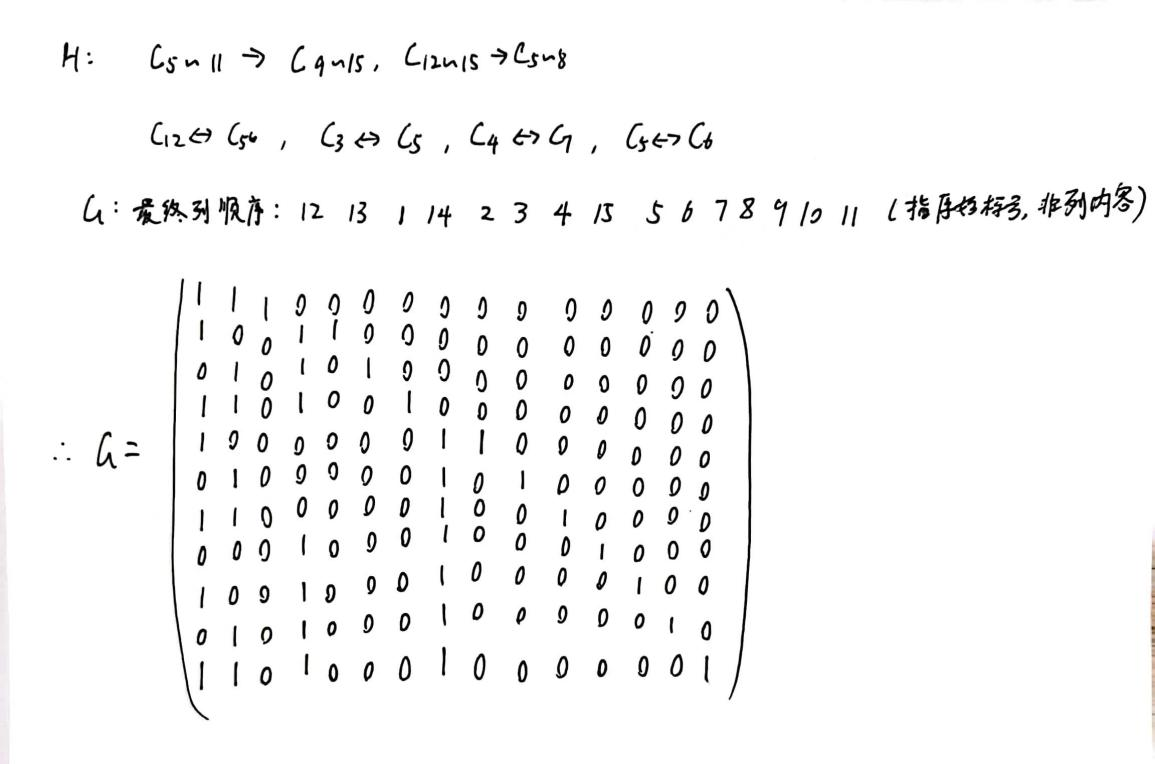 H: C5~11 → C9~15, C12~15 → C5~8
C12 ↔ C56, C3 ↔ C5, C4 ↔ C7, C5 ↔ C6
G: 最终列顺序: 12 13 1 14 2 3 4 15 5 6 7 8 9 10 11 (指原始标号, 非列内容)
1 1 1 0 0 0 0 0 0 0 0 0 0 0 0
1 0 0 1 1 0 0 0 0 0 0 0 0 0 0
0 1 0 1 0 1 0 0 0 0 0 0 0 0 0
1 1 0 1 0 0 1 0 0 0 0 0 0 0 0
∴ G = 1 0 0 0 0 0 0 1 1 0 0 0 0 0 0
0 1 0 0 0 0 0 1 0 1 0 0 0 0 0
1 1 0 0 0 0 0 1 0 0 1 0 0 0 0
0 0 0 1 0 0 0 1 0 0 0 1 0 0 0
1 0 0 1 0 0 0 1 0 0 0 0 1 0 0
0 1 0 1 0 0 0 1 0 0 0 0 0 1 0
1 1 0 1 0 0 0 1 0 0 0 0 0 0 1